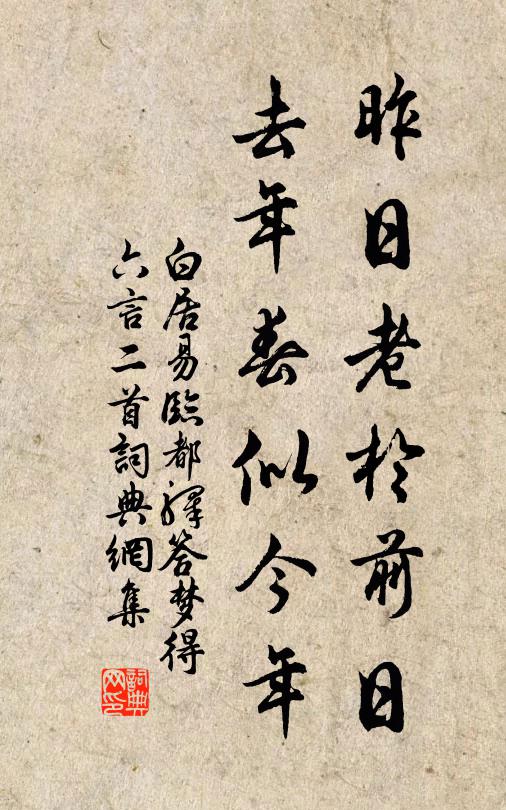 昨日老於前日
去年春似今年
白居易臨都驛答梦得
六言二首詞典網集
詞典
网印